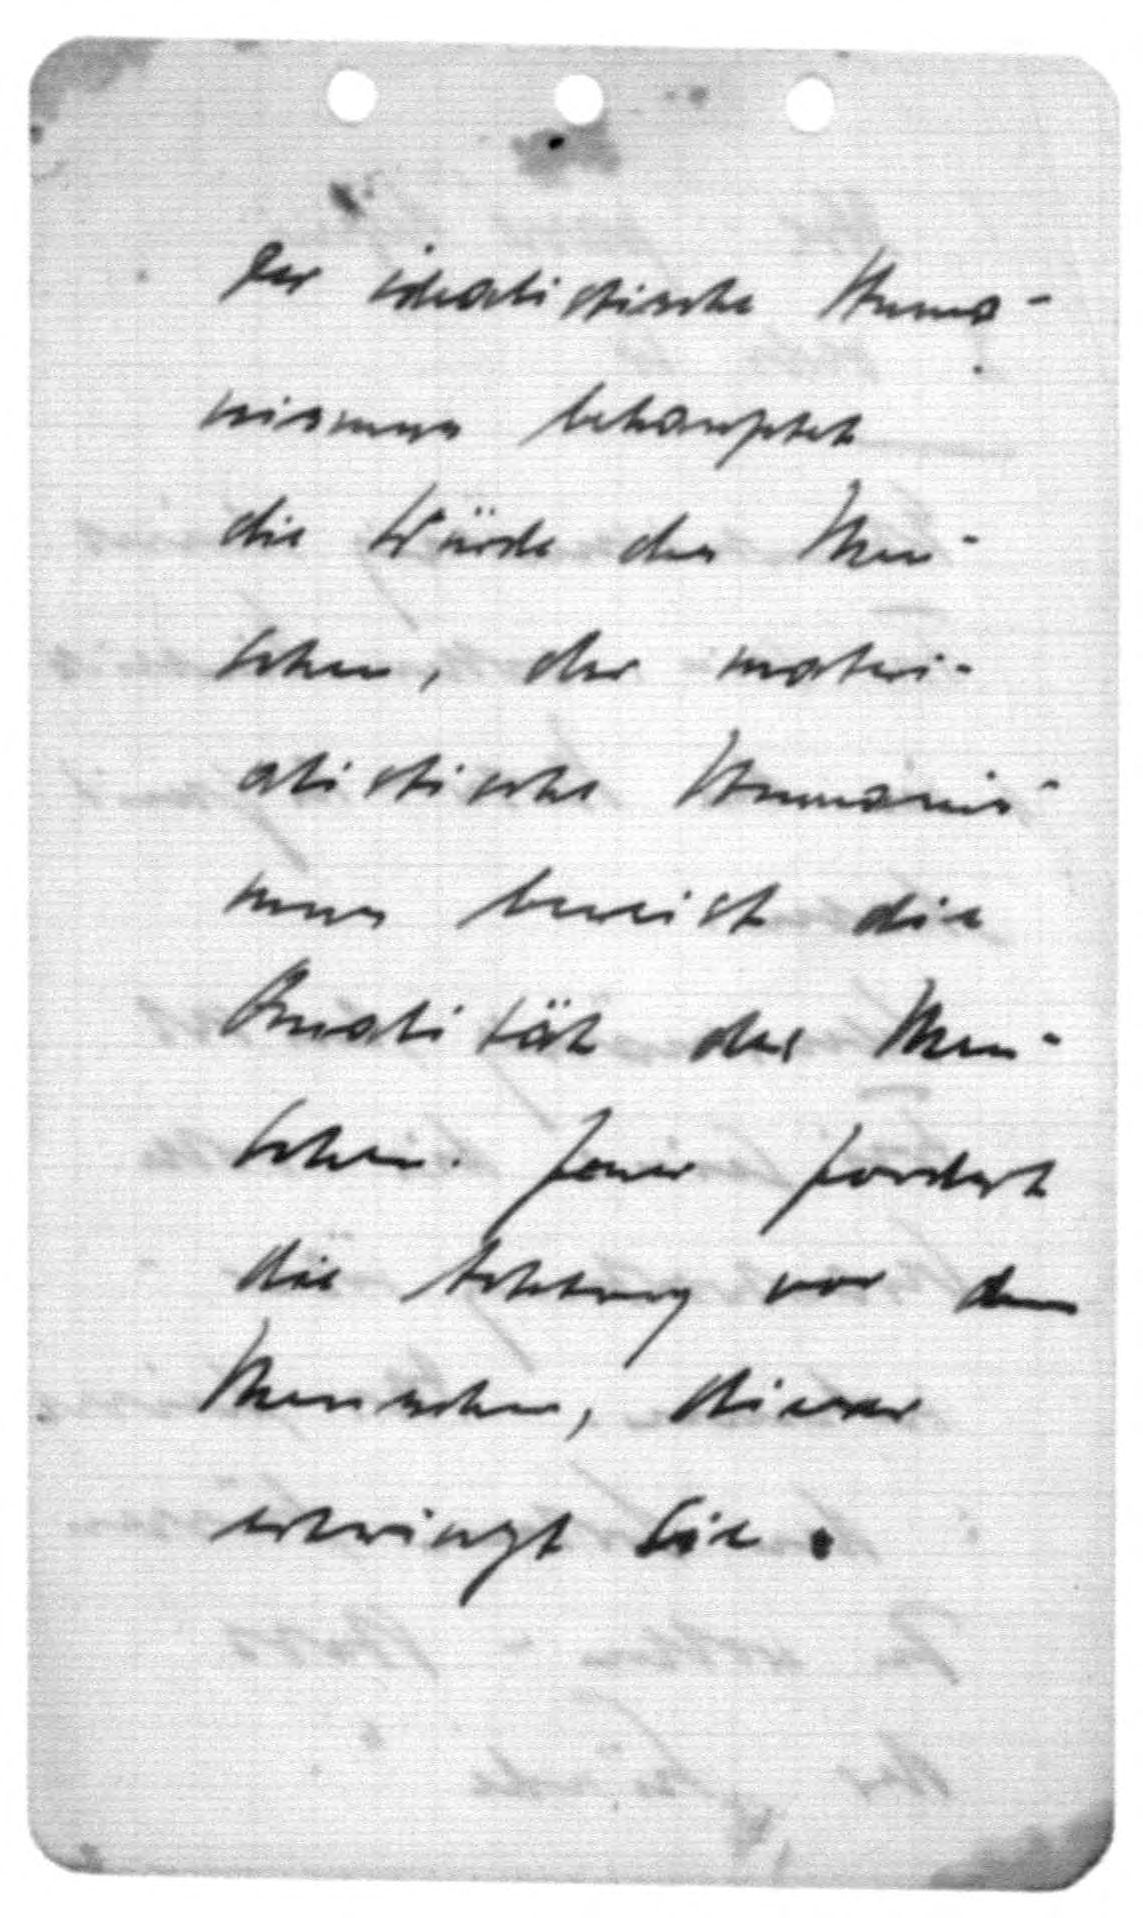 Der idealistische Huma-
nismus behauptet
die Würde des Men-
schen, der materi-
alistische Humanis-
mus beweist die
Qualität des Men-
schen. Jener fordert
die Achtung vor dem
Menschen, dieser
erzwingt sie.